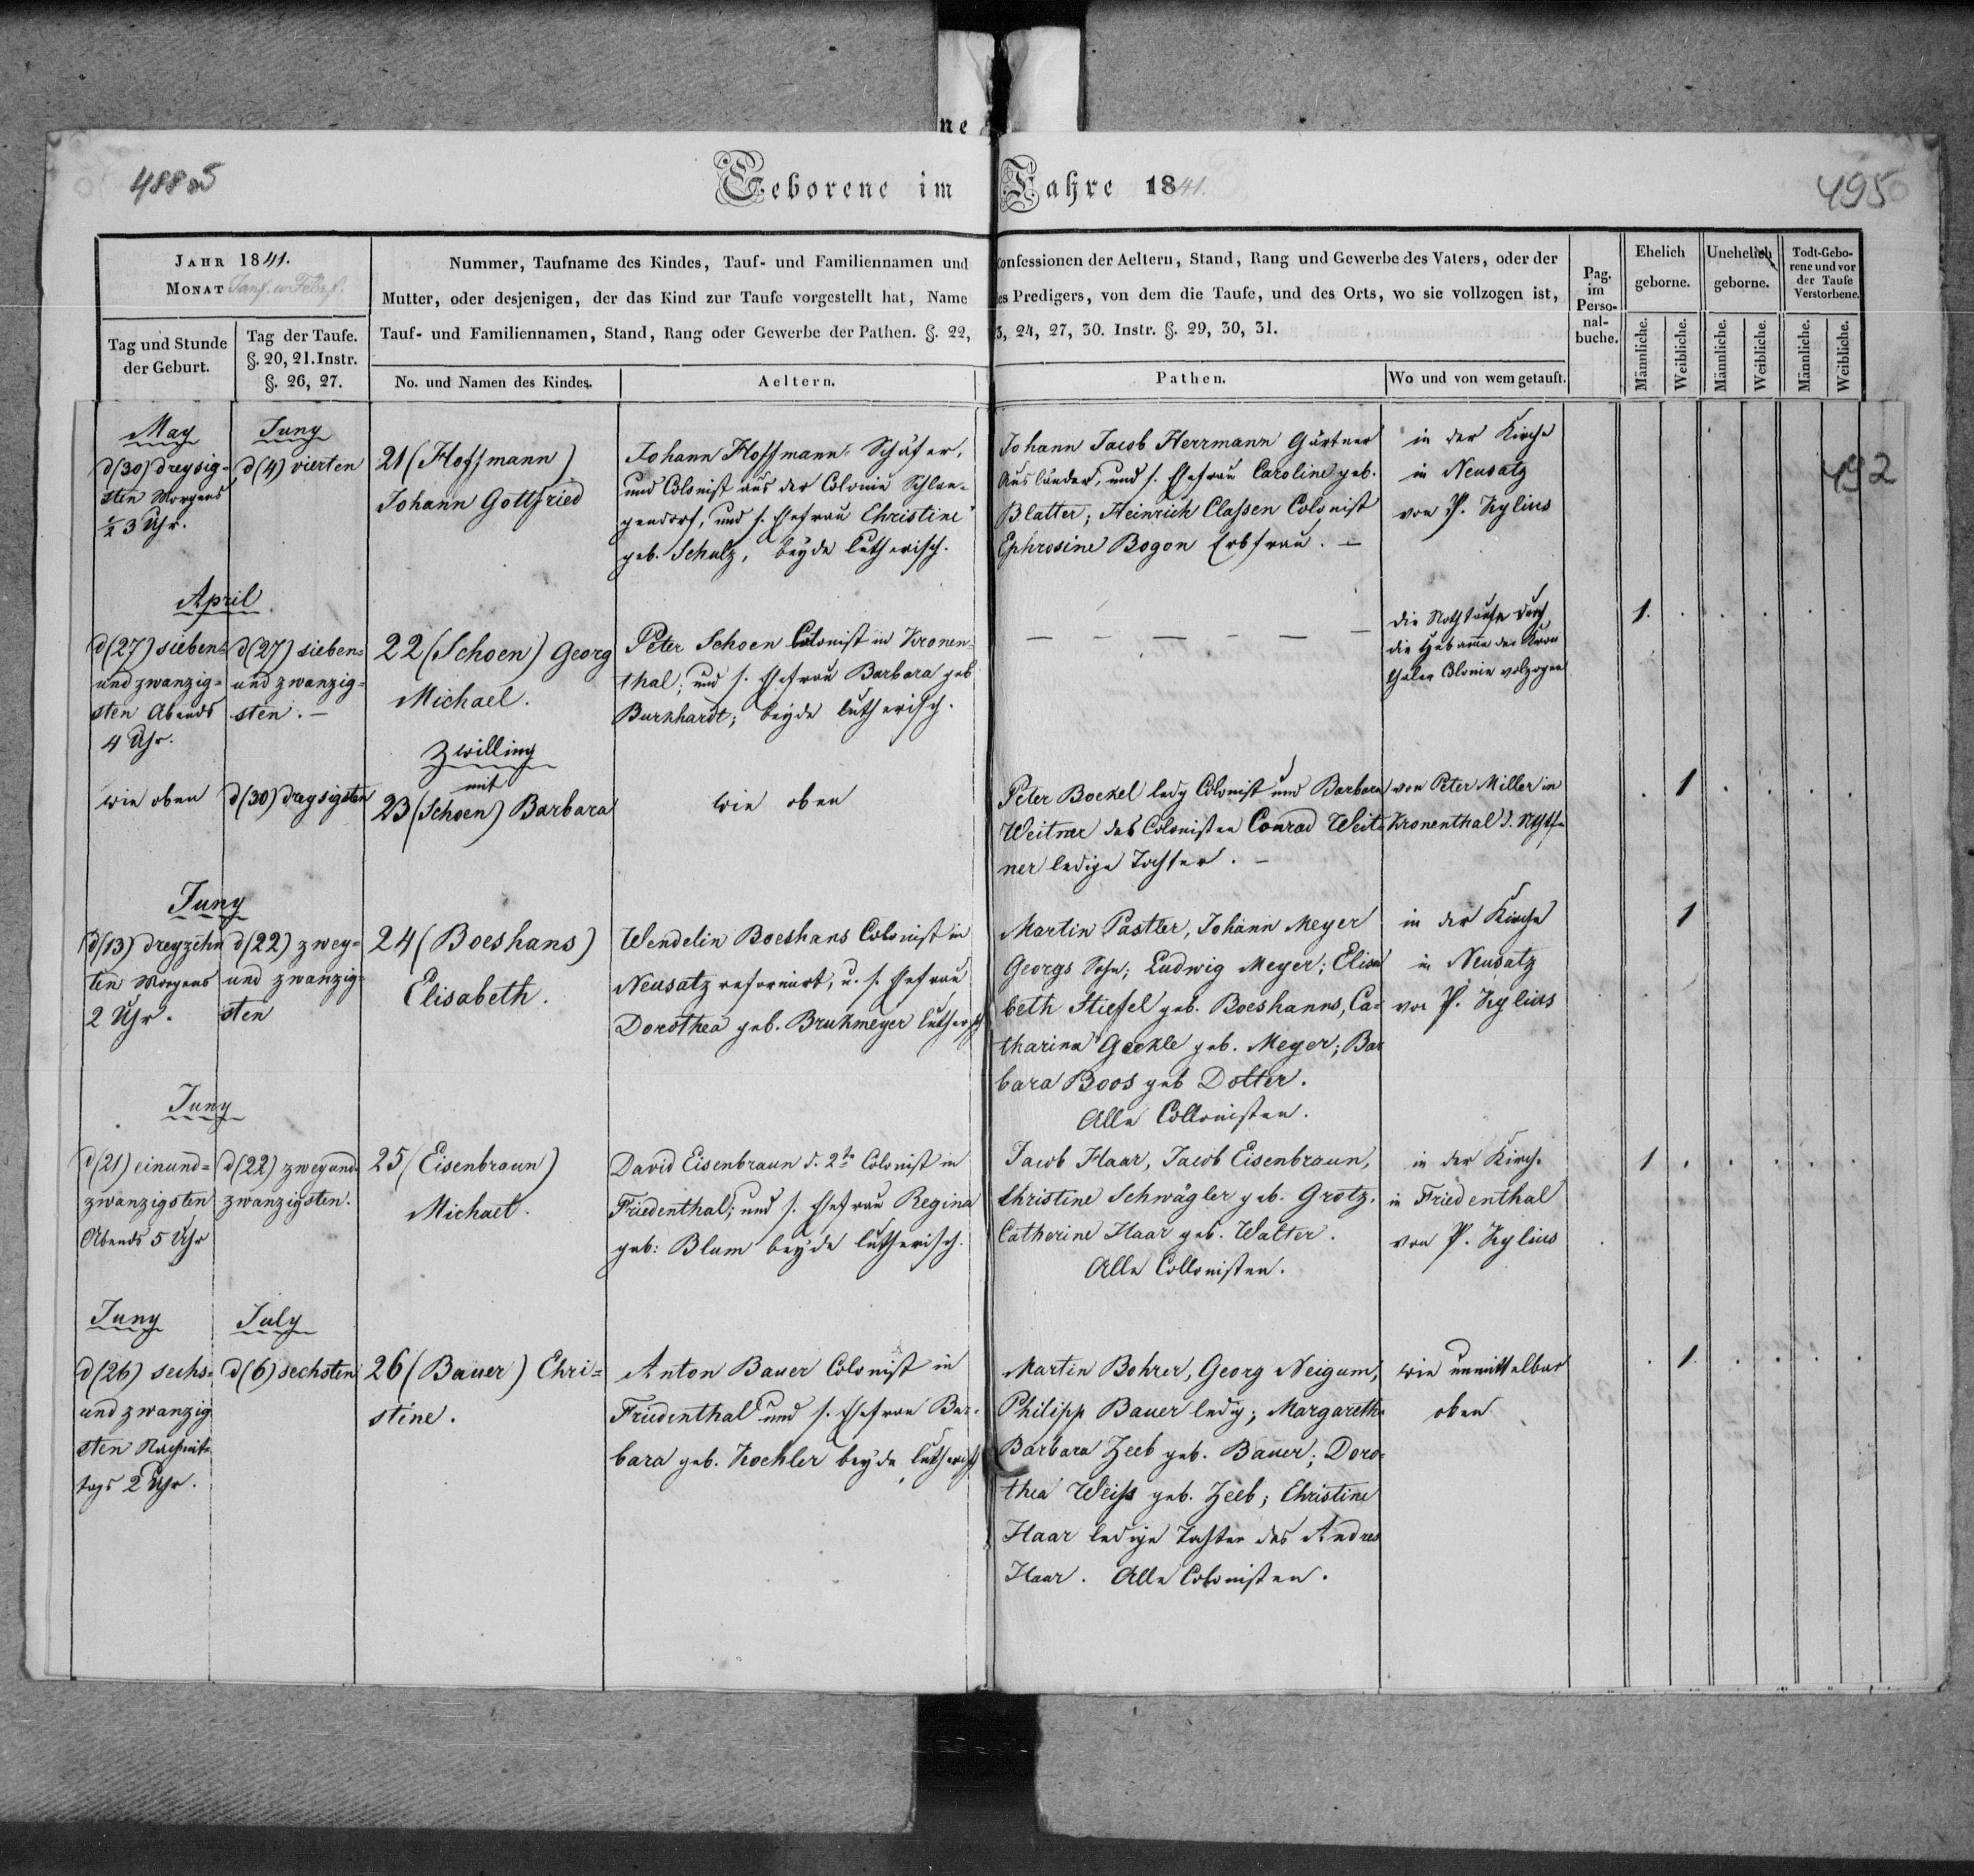 ne
488 495
Geborene im Jahre 1841.
JAHR 1841.
MONAT Janr. u Febr.
Nummer, Taufname des Kindes, Tauf- und Familiennamen und Confessionen der Aeltern, Stand, Rang und Gewerbe des Vaters, oder der
Mutter, oder desjenigen, der das Kind zur Taufe vorgestellt hat, Name des Predigers, von dem die Taufe, und des Orts, wo sie vollzogen ist,
Tauf- und Familiennamen, Stand, Rang oder Gewerbe der Pathen. §. 22, 3, 24, 27, 30. Instr. §. 29, 30, 31.
Tag und Stunde
der Geburt.
Tag der Taufe.
§. 20, 21. Instr.
§. 26, 27.
No. und Namen des Kindes.
Aeltern.
Pathen.
Wo und von wem getauft.
Pag.
im
Perso-
nal-
buche.
Ehelich
geborne.
Unehelich
geborne.
Todt-Gebo-
rene und vor
der Taufe
Verstorbene.
Männliche.
Weibliche.
Männliche.
Weibliche.
Männliche.
Weibliche.
May
d(30) dreysig-
sten Morgens
½ 3 Uhr.
Juny
d(4) vierten
21 (Hoffmann)
Johann Gottfried
Johann Hoffmann Schäfer,
und Colonist aus der Colonie Schlan-
gendorf, und s. Ehefrau Christine
geb. Schulz, beyde lutherisch.
Johann Jacob Herrmann Gärtner
Ausländer, und s. Ehefrau Caroline geb.
Blatter; Heinrich Classen Colonist
Ephrosine Bogon Erbfrau. —
in der Kirche
in Neusatz
von P. Kylius
492
April
d(27) sieben=
und zwanzig=
sten Abends
4 Uhr.
d(27) sieben=
und zwanzig=
sten. —
22 (Schoen) Georg
Michael.
Peter Schoen Colonist in Kronen-
thal; und s. Ehefrau Barbara geb
Burkhardt; beyde lutherisch.
— — — — — —
die Nothtaufe durch
die Hebamme der Kron
thaler Colonie volzogen
1.
Zwilling
mit
wie oben
d(30) dreysigsten
23 (Schoen) Barbara
wie oben
Peter Boekel ledig Colonist und Barbara
Weitner des Colonisten Conrad Weit-
ner ledige Tochter. —
von Peter Miller in
Kronenthal
1
Juny
d(13) dreyzehn
ten Morgens
2 Uhr.
d(22) zwey=
und zwanzig=
sten
24 (Boeshans)
Elisabeth.
Wendelin Boeshans Colonist in
Neusatz reformirt, u. s. Ehefrau
Dorothea geb. Brukmeyer lutherisch
Martin Pastler, Johann Meyer
Georgs Sohn; Ludwig Meyer; Elisa
beth Stiefel geb. Boeshanns, Ca-
tharina Geckle geb. Meyer; Bar
bara Boos geb Dotter.
Alle Collonisten.
in der Kirche
in Neusatz
von P. Kylius
1
Juny
d(21) einund=
zwanzigsten
Abends 5 Uhr
d(22) zweyund-
zwanzigsten.
25 (Eisenbraun)
Michael.
David Eisenbraun d. 2te Colonist in
Friedenthal; und s. Ehefrau Regina
geb: Blum beyde lutherisch.
Jacob Haar, Jacob Eisenbraun,
Christine Schwägler geb. Grotz,
Catherine Haar geb. Walter.
Alle Collonisten.
in der Kirche
in Friedenthal
von P. Kylius
1
Juny
d(26) sechs=
und zwanzig
sten Nachmit-
tags 2 Uhr.
July
d(6) sechsten
26 (Bauer) Chri=
stine.
Anton Bauer Colonist in
Friedenthal und s. Ehefrau Bar-
bara geb. Koehler beyde lutherisch
Martin Bohrer, Georg Neigum,
Philipp Bauer ledig; Margaretha
Barbara Zeeb geb. Bauer; Doro-
thea Weiss geb. Zeeb; Christine
Haar ledige Tochter des Andres
Haar. Alle Colonisten.
wie unmittelbar
oben
1.